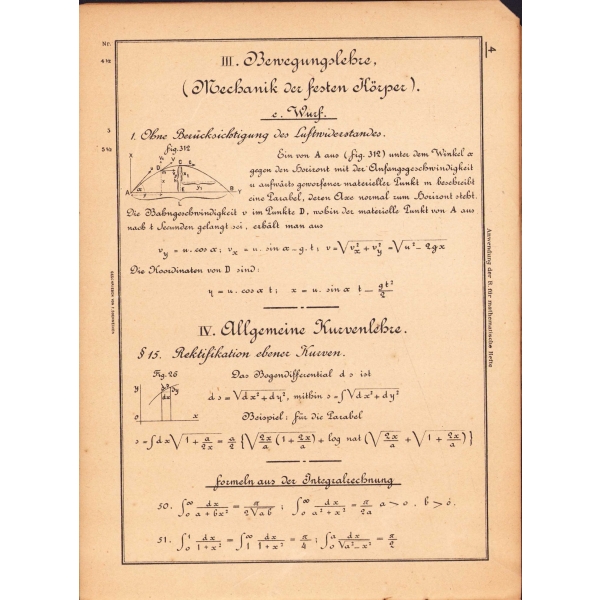 Nr.
4
4½
III. Bewegungslehre,
(Mechanik der festen Körper).
c. Wurf.
3
5½
1. Ohne Berücksichtigung des Luftwiderstandes.
Fig. 312
Ein von A aus (Fig. 312) unter dem Winkel α
gegen den Horizont mit der Anfangsgeschwindigkeit
u aufwärts geworfener materieller Punkt m beschreibt
eine Parabel, deren Axe normal zum Horizont steht.
Die Bahngeschwindigkeit v im Punkte D, wohin der materielle Punkt von A aus
nach t Secunden gelangt sei, erhält man aus
v_y = u. cos α; v_x = u. sin α - g. t; v = √(v_x² + v_y²) = √(u² - 2gx)
Die Koordinaten von D sind:
y = u. cos α t; x = u. sin α t - gt²/2
Anwendung der B. für mathematische Hefte
IV. Allgemeine Kurvenlehre.
§ 15. Rektifikation ebener Kurven.
Fig. 26
Das Bogendifferential ds ist
ds = √(dx² + dy²), mithin s = ∫√(dx² + dy²)
Beispiel: für die Parabel
s = ∫dx √(1 + a/2x) = a/2 {√(2x/a (1 + 2x/a)) + log nat (√(2x/a) + √(1 + 2x/a))}
Formeln aus der Integralrechnung
50. ∫₀^∞ dx/(a + bx²) = π/(2√ab); ∫₀^∞ dx/(a² + x²) = π/2a a > o. b > o.
51. ∫₀¹ dx/(1 + x²) = ∫₁^∞ dx/(1 + x²) = π/4; ∫₀^a dx/√(a² - x²) = π/2